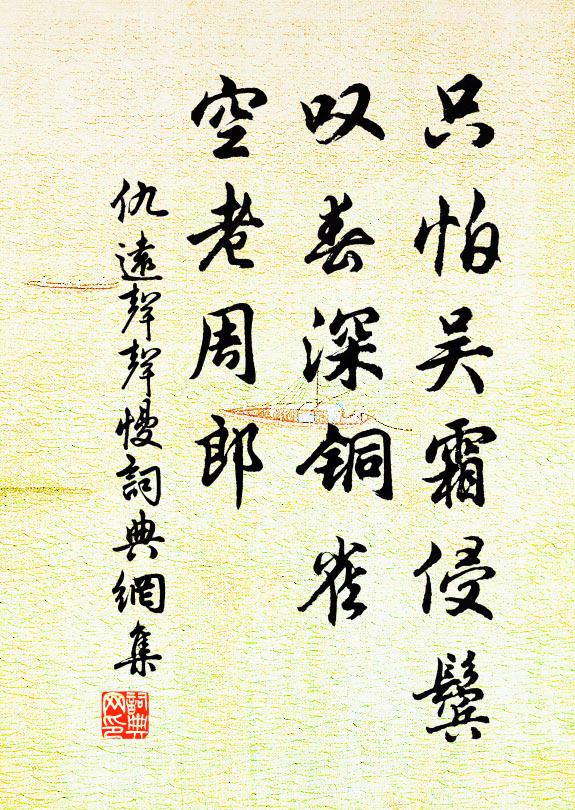 只怕吴霜侵鬓
叹春深铜雀
空老周郎
仇遠聲聲慢詞典網集
詞典
网印